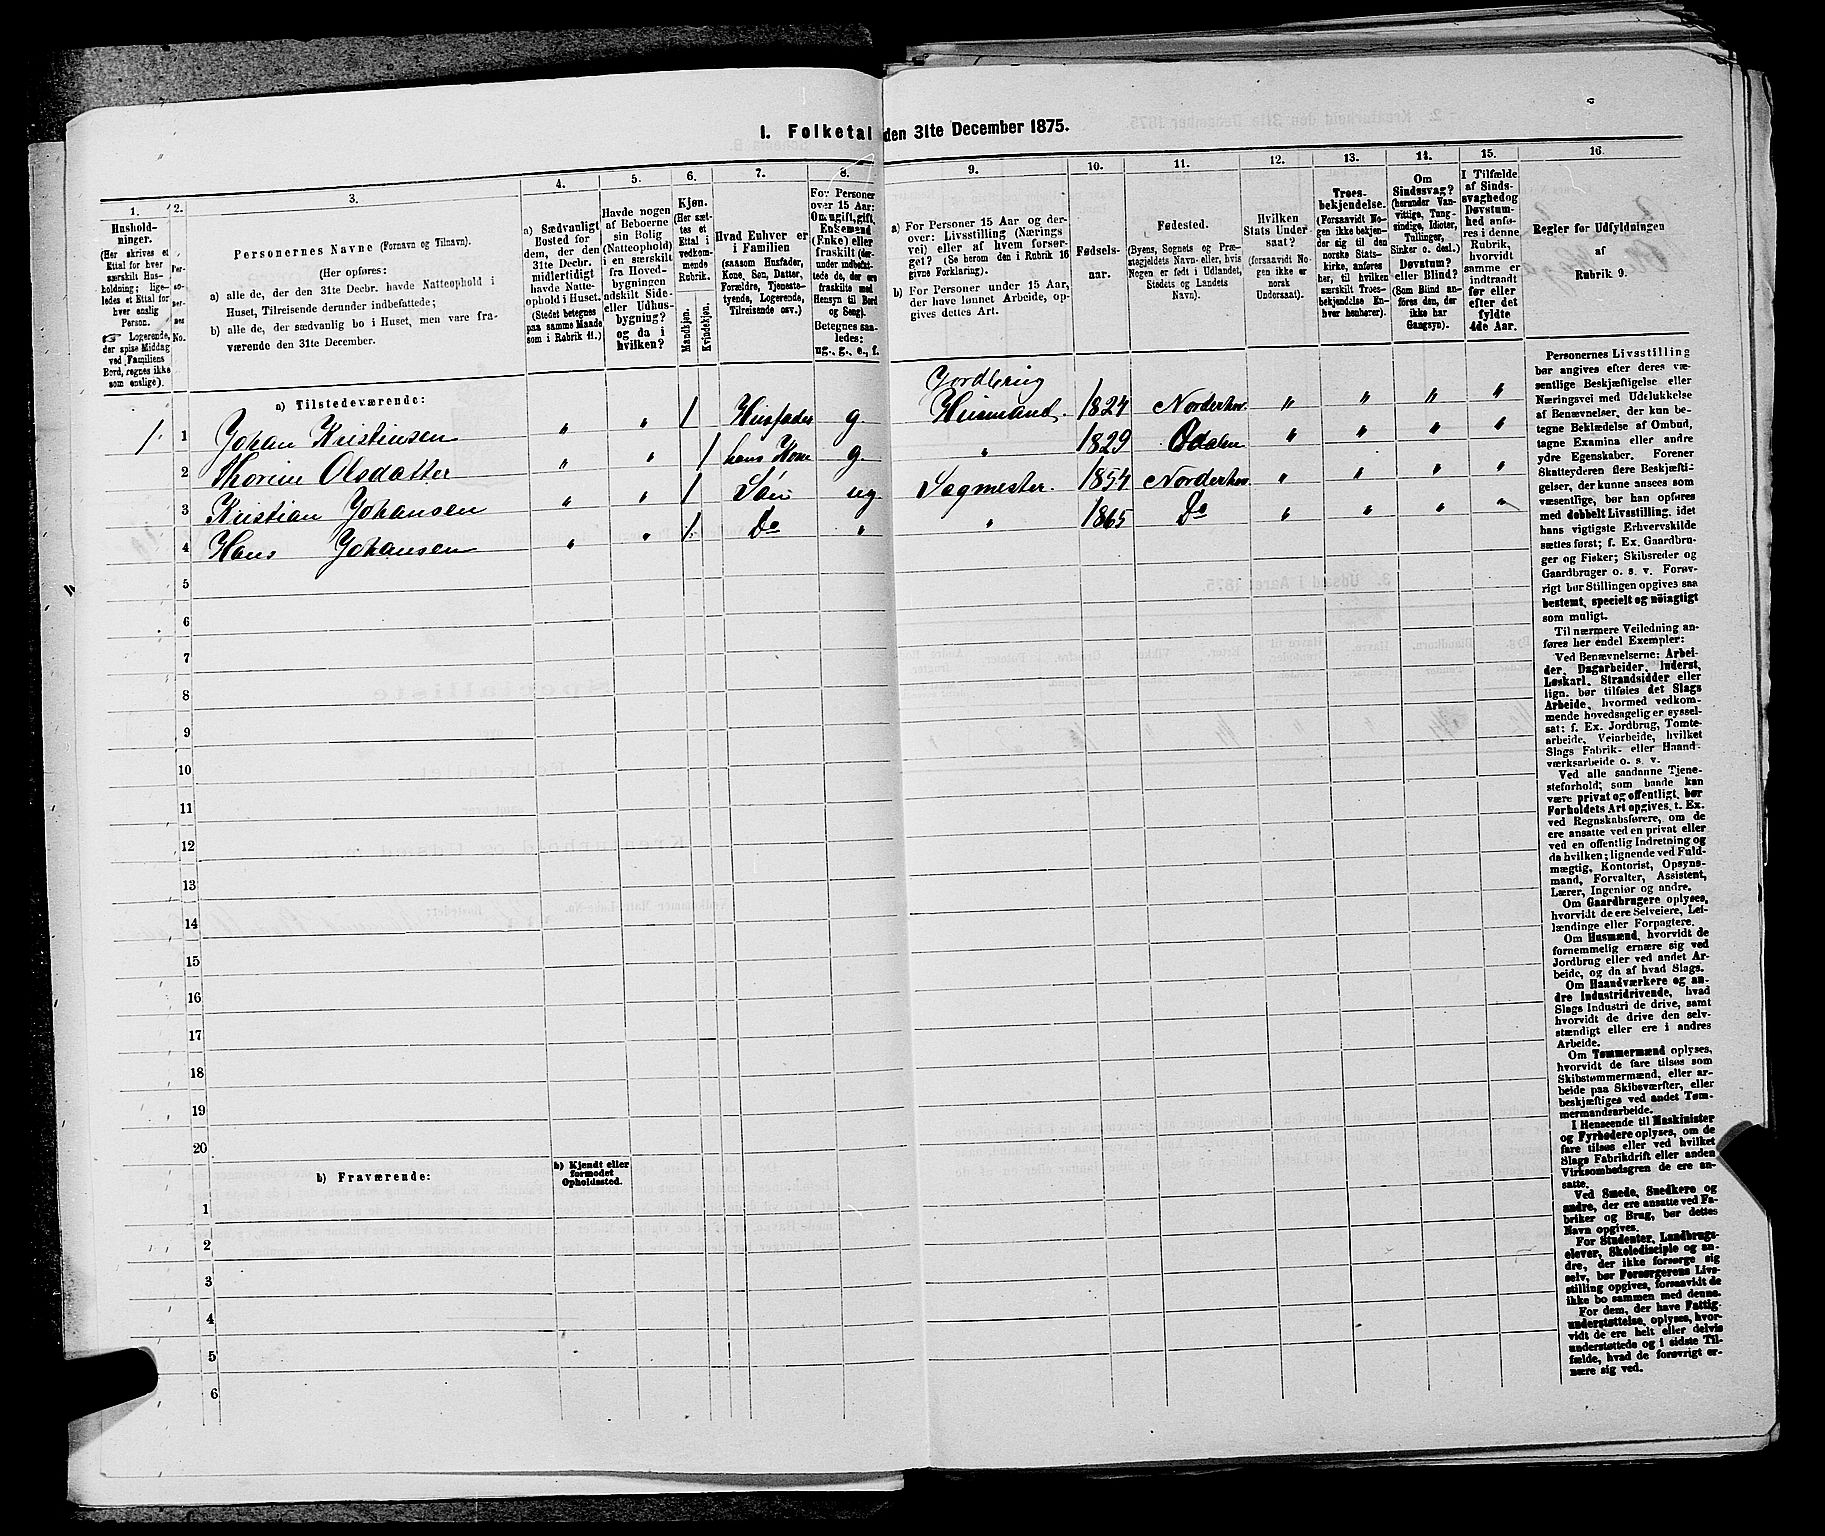 1. Folketal den 31te December 1875.
1.
Hushold-
ninger.
(Her skrives et
Ettal for hver
særskilt Hus-
holdning; lige-
ledes et Ettal for
hver enslig
Person.
☞ Logerende,
der spise Middag
ved Familiens
Bord, regnes ikke
som enslige).
2.
Per-
so-
ner-
nes
No.
3.
Personernes Navne (Fornavn og Tilnavn).
(Her opføres:
a) alle de, der den 31te Decbr. havde Natteophold i
Huset, Tilreisende derunder indbefattede;
b) alle de, der sædvanlig bo i Huset, men vare fra-
værende den 31te December.
4.
a) Sædvanligt
Bosted for
dem, der den
31te Decbr.
midlertidigt
havde Natte-
ophold i Huset.
(Stedet betegnes
paa samme Maade
som i Rubrik 11.)
5.
Havde nogen
af Beboerne
sin Bolig
(Natteophold)
i en særskilt
fra Hoved-
bygningen
adskilt Side-
eller Udhus-
bygning?
og da i
hvilken?
6.
Kjøn.
(Her sæt-
tes et
Ettal i
vedkom-
mende
Rubrik.
Mandkjøn.
Kvindekjøn.
7.
Hvad Enhver er
i Familien
(saasom Husfader,
Kone, Søn, Datter,
Forældre, Tjeneste-
tyende, Logerende,
Tilreisende osv.)
8.
For Personer
over 15 Aar:
Om ugift, gift,
Enkemand
(Enke) eller
fraskilt (der-
under indbefat-
tede de, der ere
fraskilte med
Hensyn til Bord
og Seng).
Betegnes saa-
ledes:
ug., g., e., f.
9.
a) For Personer 15 Aar og der-
over: Livsstilling (Nærings
vei) eller af hvem forsør-
get? (Se herom den i Rubrik 16
givne Forklaring).
b) For Personer under 15 Aar,
der have lønnet Arbeide, op-
gives dettes Art.
10.
Fødsels-
aar.
11.
Fødested.
(Byens, Sognets og Præ-
stegjeldets Navn- eller, hvis
Nogen er født i Udlandet,
Stedets og Landets
Navn).
12.
Hvilken
Stats Under-
saat?
(forsaavidt No-
gen ikke er
norsk
Undersaat).
13.
Troes-
bekjendelse.
(Forsaavidt No-
gen ikke bekjen-
der sig til den
norske Stats-
kirke, anføres
her, til hvilken
særskilt Troes-
bekjendelse En-
hver henhører).
14.
Om
Sindssvag?
(herunder Van-
vittige, Tung-
sindige, Idioter,
Tullinger,
Sinker o. desl.)
Døvstum?
eller Blind?
(Som Blind an-
føres den, der
ikke har
Gangsyn).
15.
I Tilfælde
af Sinds-
svaghed og
Døvstum-
hed anfø-
res i denne
Rubrik,
hvorvidt
samme er
indtraadt
før eller
efter det
fyldte
4de Aar.
16.
Regler for Udfyldningen
af
Rubrik 9.
a) Tilstedeværende:
Jordbrug
1. 1 Johan Kristiansen " " 1 Husfader g Husmand. 1824 Norderhov. " " " "
2 Thorine Olsdatter " " 1 hans Kone g. " 1829 Odalen " " " "
3 Kristian Johansen " " 1 Søn ug Sagmester. 1854 Norderhov. " " " "
4 Hans Johansen " " 1. Do " " 1865 Do " " " "
5
6
7
8
9
10
11
12
13
14
15
16
17
18
19
20
b) Fraværende:
b) Kjendt eller
formodet
Opholdssted.
1
2
3
4
5
6
Personernes Livsstilling
bør angives efter deres væ-
sentlige Beskjæftigelse eller
Næringsvei med Udelukkelse
af Benævnelser, der kun be-
tegne Beklædelse af Ombud,
tagne Examina eller andre
ydre Egenskaber. Forener
Skatteyderen flere Beskjæfti-
gelser, der kunne ansees som
væsentlige, bør han opføres
med dobbelt Livsstilling, idet
hans vigtigste Erhvervskilde
sættes først; f. Ex. Gaardbru-
ger og Fisker; Skibsreder og
Gaardbruger o. s. v. Forøv-
rigt bør Stillingen opgives saa
bestemt, specielt og nöiagtigt
som muligt.
Til nærmere Veiledning an-
føres her endel Exempler:
Ved Benævnelserne: Arbei-
der, Dagarbeider, Inderst,
Løskarl, Strandsidder eller
lign. bør tilføies det Slags
Arbeide, hvormed vedkom-
mende hovedsagelig er syssel-
sat: f. Ex. Jordbrug, Tomte-
arbeide, Veiarbeide, hvilket
Slags Fabrik- eller Haand-
værksarbeide o. s. v.
Ved alle saadanne Tjene-
steforhold; som baade kan
være privat og offentligt, bør
Forholdets Art opgives, t. Ex.
ved Regnskabsførere, om de
ere ansatte ved en privat eller
ved en offentlig Indretning og
da hvilken; lignende ved Fuld-
mægtig, Kontorist, Opsyns-
mand, Forvalter, Assistent,
Lærer, Ingeniør og andre.
Om Gaardbrugere oplyses,
hvorvidt de ere Selveiere, Lei-
lændinge eller Forpagtere.
Om Husmænd, hvorvidt de
fornemmelig ernære sig ved
Jordbrug eller ved andet Ar-
beide, og da af hvad Slags.
Om Haandværkere og an-
dre Industridrivende, hvad
Slags Industri de drive, samt
hvorvidt de drive den selv-
stændigt eller ere i andres
Arbeide.
Om Tømmermænd oplyses,
hvorvidt de fare tilsøs som
Skibstømmermænd, eller ar-
beide paa Skibsværfter, eller
beskjæftiges ved andet Tøm-
mermandsarbeide.
I Henseende til Maskinister
og Fyrbødere oplyses, om de
fare tilsøs eller ved hvilket
Slags Fabrikdrift eller anden
Virksombedsgren de ere an-
satte.
Ved Smede, Snedkere og
andre, der ere ansatte ved Fa-
briker og Brug, bør dettes
Navn opgives.
For Studenter, Landbrugs-
elever, Skoledisciple og an-
dre, der ikke forsørge sig
selv, bør Forsørgerens Livs-
stilling opgives, forsaavidt de
ikke bo sammen med denne.
For dem, der have Fattig-
understøttelse, oplyses, hvor-
vidt de ere helt eller delvis
understøttede og i sidste Til-
fælde, hvad de forøvrigt er-
nære sig ved.